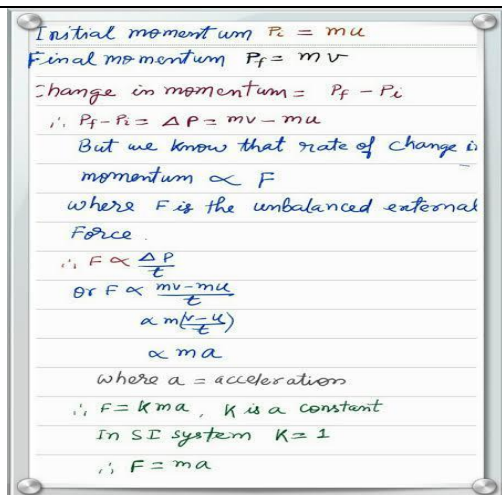 Initial momentum Pi = mu
Final momentum Pf = mv
Change in momentum = Pf - Pi
∴ Pf - Pi = ΔP = mv - mu
But we know that rate of change i
momentum ∝ F
where F is the unbalanced external
Force.
∴ F ∝ ΔP/t
or F ∝ (mv - mu)/t
∝ m(v - u/t)
∝ ma
where a = acceleration
∴ F = Kma, K is a constant
In SI system K = 1
∴ F = ma